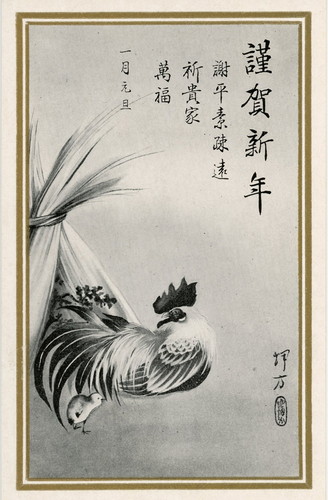 謹賀新年
謝平素疎遠
祈貴家
萬福
一月元旦
輝方